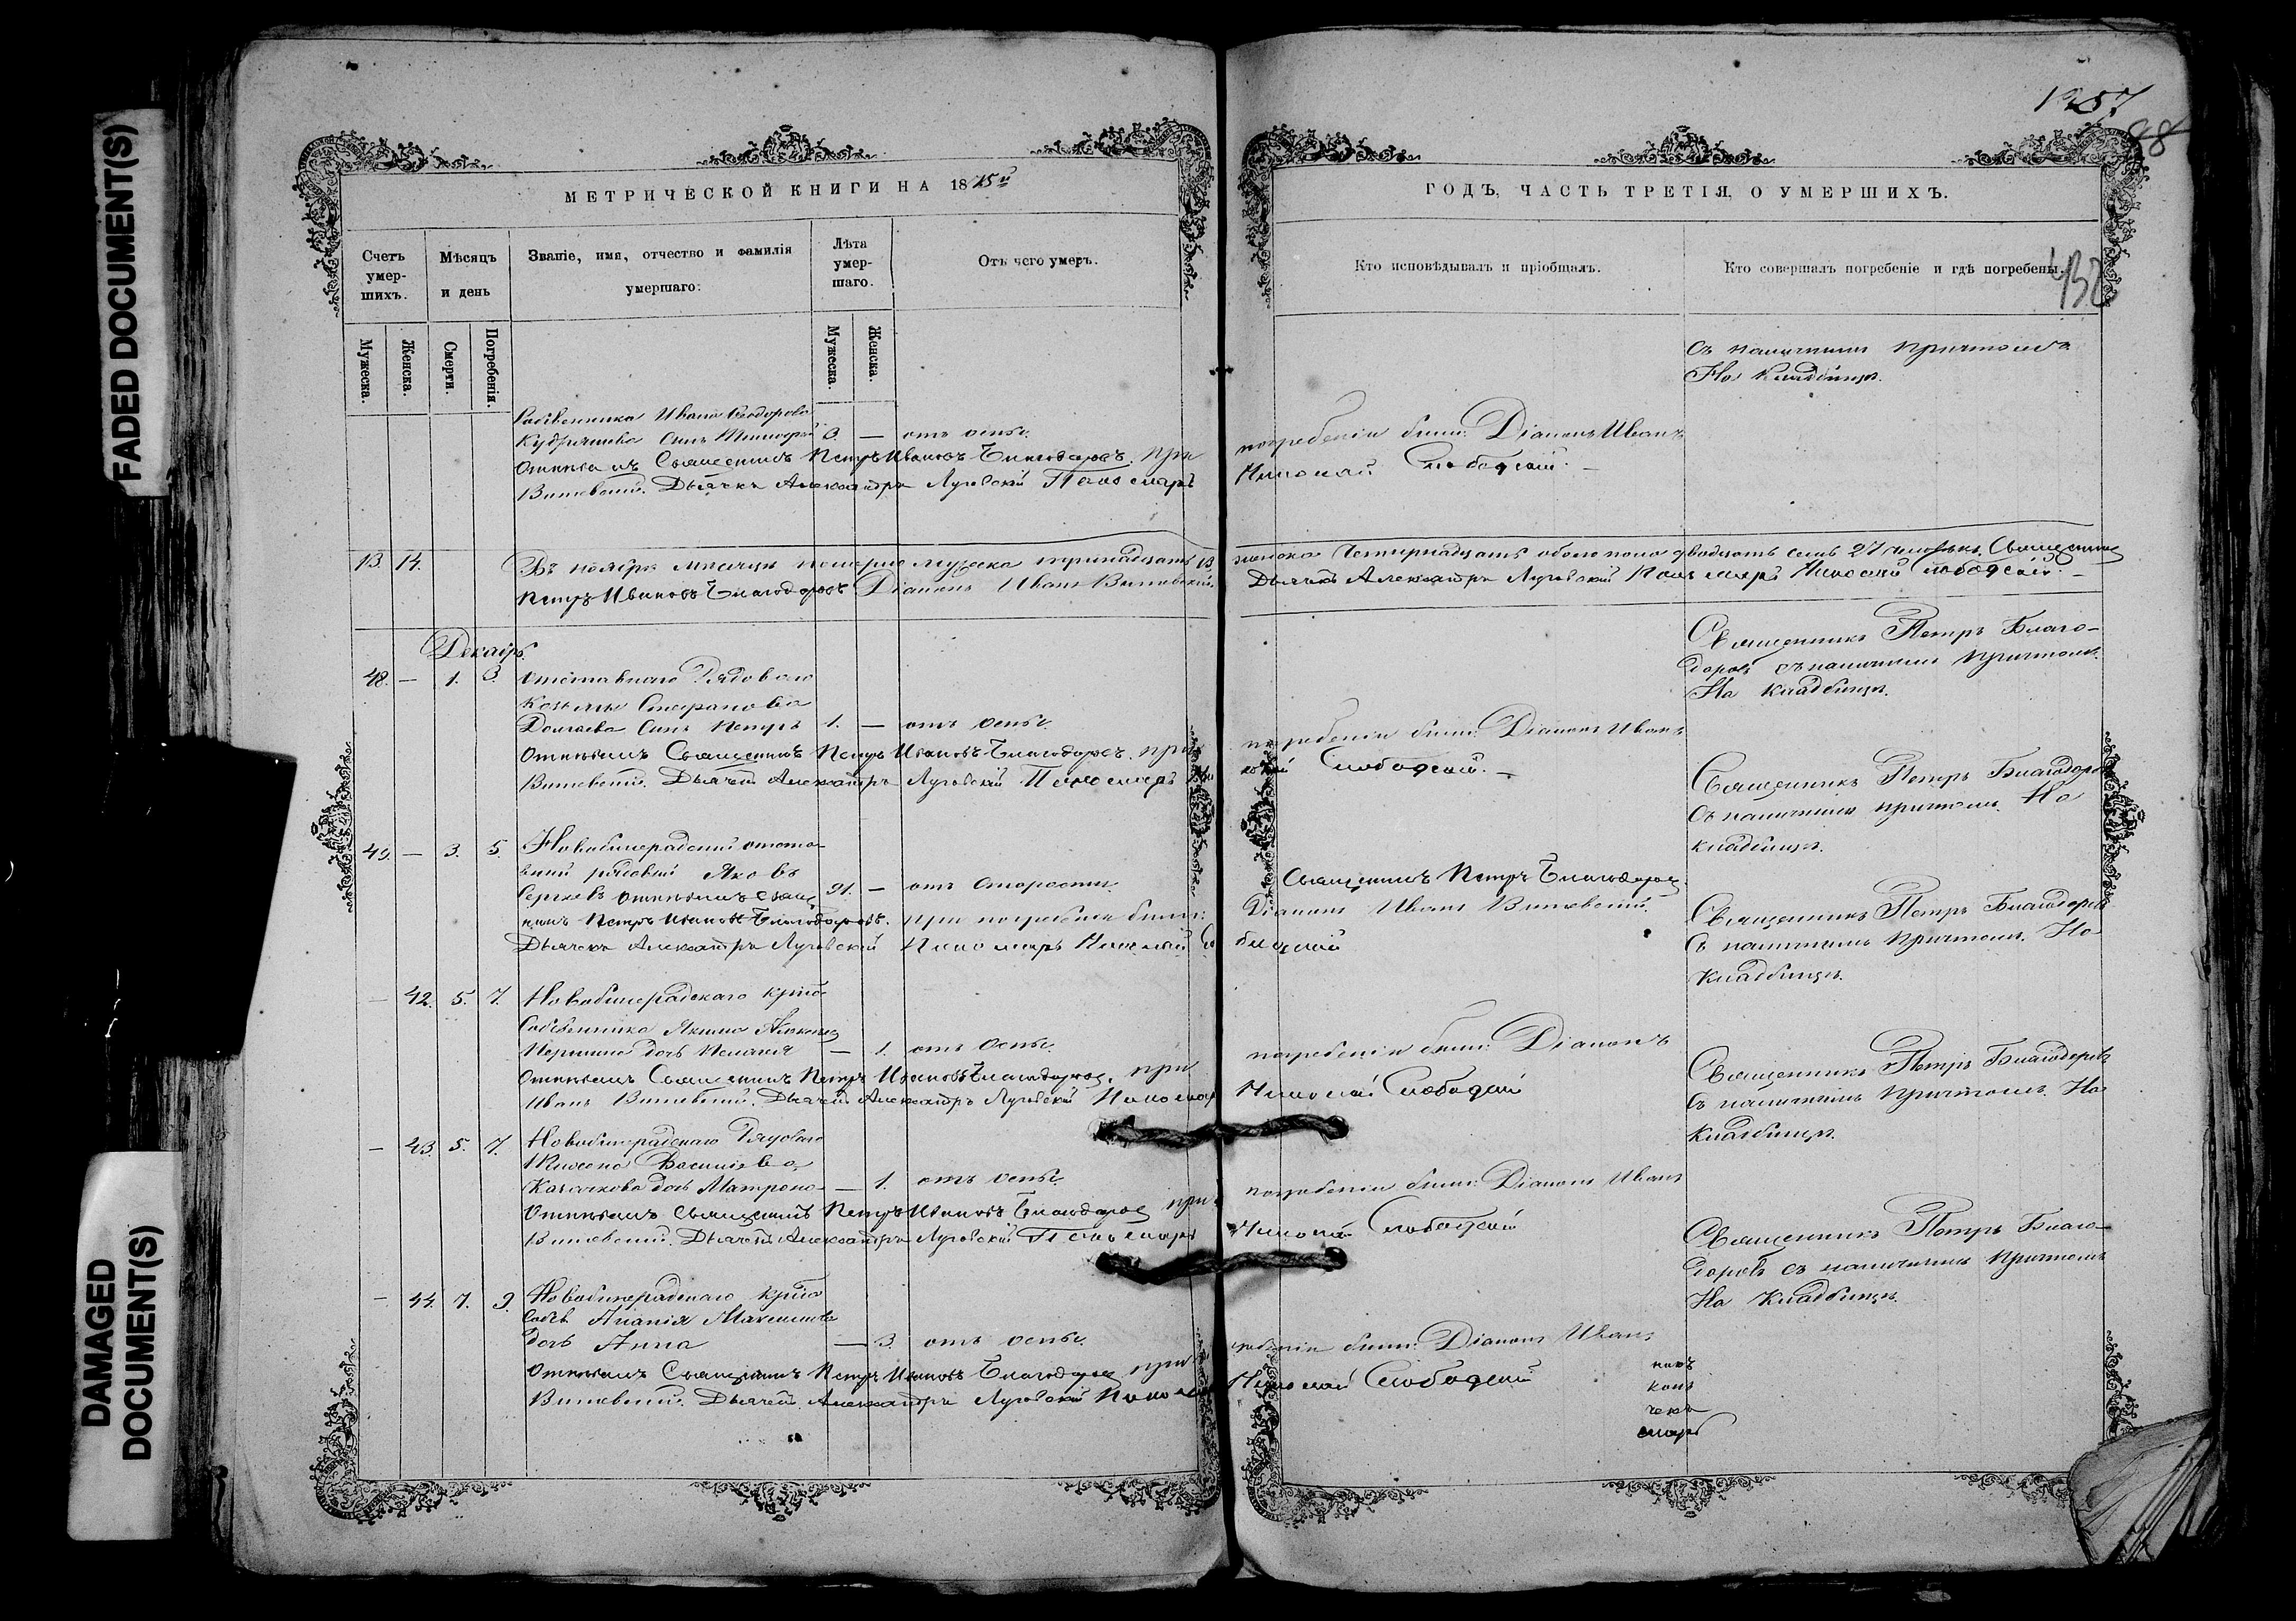 FADED DOCUMENT(S)
DAMAGED
DOCUMENT(S)
1257
88
МЕТРИЧЕСКОЙ КНИГИ НА 1875й
ГОДЪ, ЧАСТЬ ТРЕТІЯ, О УМЕРШИХЪ.
Счетъ умер-шихъ.
Мѣсяцъ и день
Званіе, имя, отчество и фамилія умершаго.
Лѣта умер-шаго.
Отъ чего умеръ.
Кто исповѣдывалъ и пріобщалъ.
Кто совершалъ погребеніе и гдѣ погребены.
Мужеска.
Женска.
Смерти.
Погребенія.
Мужеска.
Женска.
съ наличнымъ причтомъ
На кладбищѣ.
Собственника Ивана Ѳеодорова
сынъ — отъ оспы.
Отпѣвалъ Священникъ Петръ Ивановъ Благодаровъ. при погребеніи были: Діаконъ Иванъ
Витевскій. Дьячекъ Александръ Луговскій Пономарь Николай Слободскій. —
13. 14. Въ ноябрѣ мѣсяцѣ померло мужеска тринадцать 13, женска четырнадцать обоего пола двадцать семь 27 человѣкъ. Священникъ
Петръ Ивановъ Благодаровъ. Діаконъ Иванъ Витевскій. Дьячекъ Александръ Луговскій Пономарь Николай Слободскій. —
Декабрь.
48. — 1. 3. Отставнаго Рядоваго
Козьмы Стефанова
сынъ Петръ 1. — отъ оспы.
Отпѣвалъ Священникъ Петръ Ивановъ Благодаровъ. при погребеніи были: Діаконъ Иванъ
Витевскій. Дьячекъ Александръ Луговскій Пономарь Слободской. —
Священникъ Петръ Благо-
даровъ съ наличнымъ причтомъ.
На кладбищѣ.
49. — 3. 5. отста-
вной рядовой Яковъ
Сергѣевъ отпѣвалъ Свящ 91. — отъ старости.
Петръ Ивановъ Благодаровъ. при погребеніи были:
Дьячекъ Александръ Луговскій Пономарь Николай Слободской
Священникъ Петръ Благодаровъ.
Діаконъ Иванъ Витевскій.
Священникъ Петръ Благодаровъ
Съ наличнымъ причтомъ. На
кладбищѣ.
— 42. 5. 7.
Собственника Якима
дочь Пелагея — 1. отъ оспы.
Отпѣвалъ Священникъ Петръ Ивановъ Благодаровъ. при погребеніи были: Діаконъ
Иванъ Витевскій. Дьячекъ Александръ Луговскій Пономарь Николай Слободской
Священникъ Петръ Благодаровъ
Съ наличнымъ причтомъ. На
Кладбищѣ.
— 43. 5. 7. Рядоваго
Васильева
дочь Матрона — 1. отъ оспы.
Отпѣвалъ Священникъ Петръ Ивановъ Благодаровъ при погребеніи были: Діаконъ Иванъ
Витевскій. Дьячекъ Александръ Луговскій Пономарь Николай Слободской
Священникъ Петръ Благодаровъ
Съ наличнымъ причтомъ. На
Кладбищѣ.
— 44. 7. 9.
Собст Ананія Максимова
дочь Анна — 3. отъ оспы.
Отпѣвалъ Священникъ Петръ Ивановъ Благодаровъ при погребеніи были: Діаконъ Иванъ
Витевскій. Дьячекъ Александръ Луговскій Пономарь Николай Слободской
Священникъ Петръ Благо-
даровъ съ наличнымъ причтомъ
На Кладбищѣ.
никъ
конъ
чекъ
марь